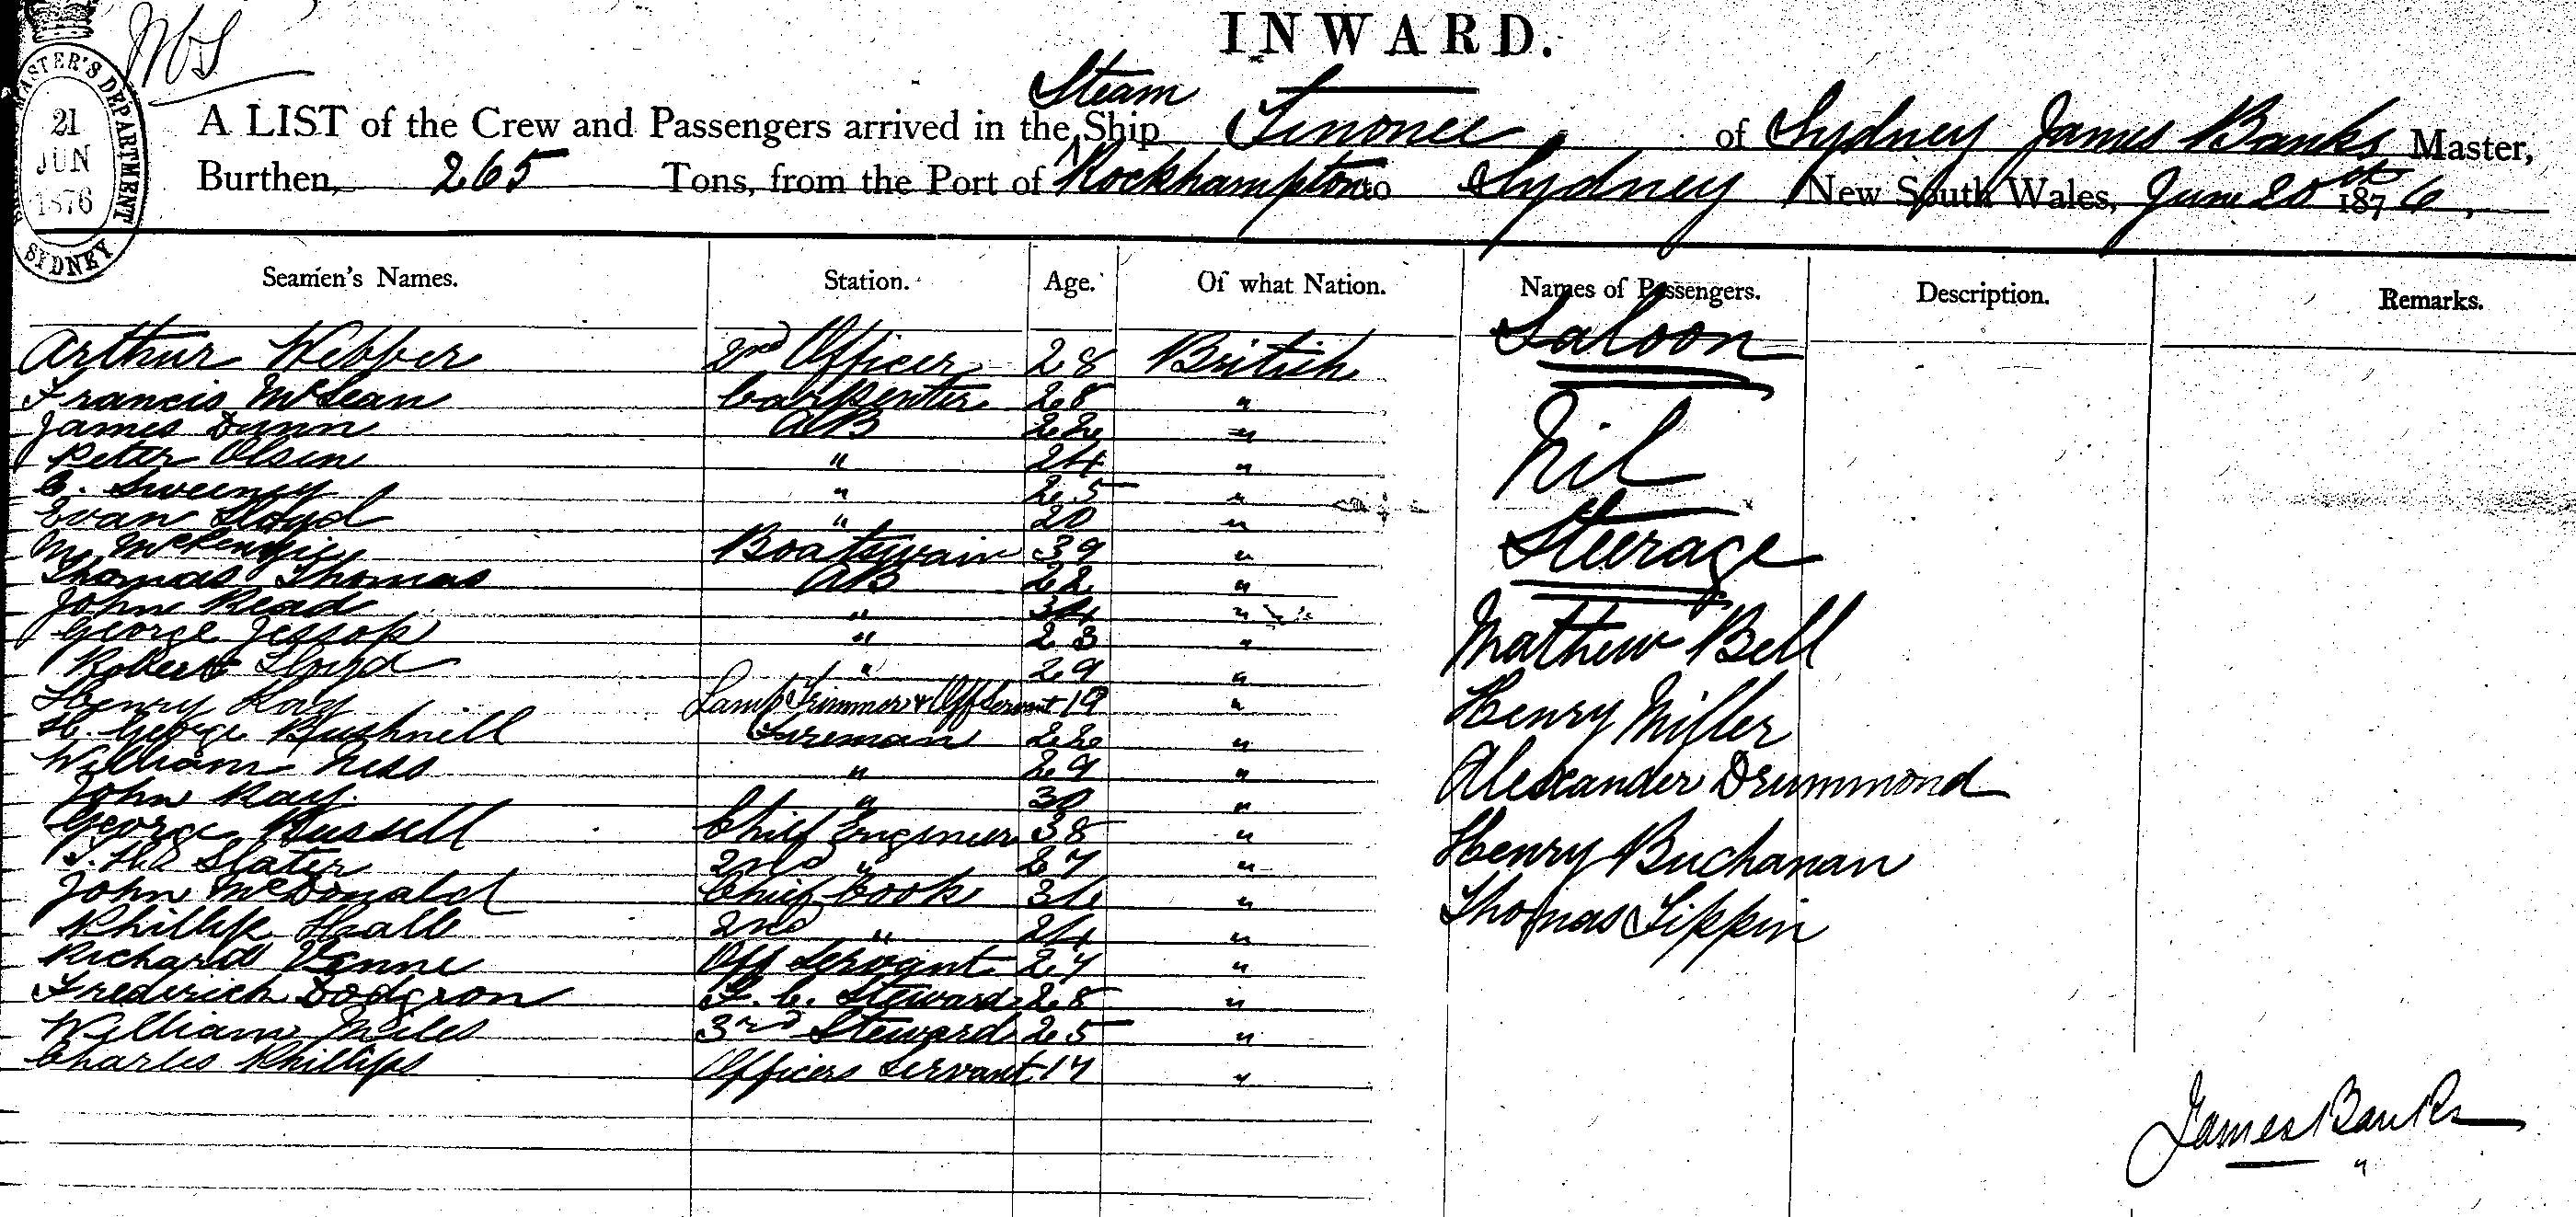 INWARD.
MASTER'S DEPARTMENT
21
JUN
1876
SYDNEY
Steam
A LIST of the Crew and Passengers arrived in the Ship Tinonee of Sydney James Banks Master,
Burthen, 265 Tons, from the Port of Rockhampton to Sydney New South Wales, June 20th 1876,
Seamen's Names. Station. Age. Of what Nation. Names of Passengers. Description. Remarks.
Arthur Webber 2nd Officer 28 British
Francis McLean Carpenter 28 "
James Dunn AB 22 "
Peter Olsen " 24 "
C. Sweeney " 25 "
Evan Lloyd " 20 "
M. McKenzie Boatswain 39 "
Thomas Thomas AB 22 "
John Read " 34 "
George Jessop " 23 "
Robert Lloyd " 29 "
Henry Kay Lamp Trimmer & Off Servant 19 "
H. George Bushnell Fireman 22 "
William Ness " 29 "
John Kay " 30 "
George Russell Chief Engineer 38 "
T. H. Slater 2nd " 27 "
John McDonald Chief Cook 32 "
Phillip Halls 2nd " 24 "
Richard Venne Off Servant 27 "
Frederick Dodgson F. C. Steward 28 "
William Miles 3rd Steward 25 "
Charles Phillips Officers Servant 17 "
Saloon
Nil
Steerage
Mathew Bell
Henry Miller
Alexander Drummond
Henry Buchanan
Thomas Tippin
James Banks